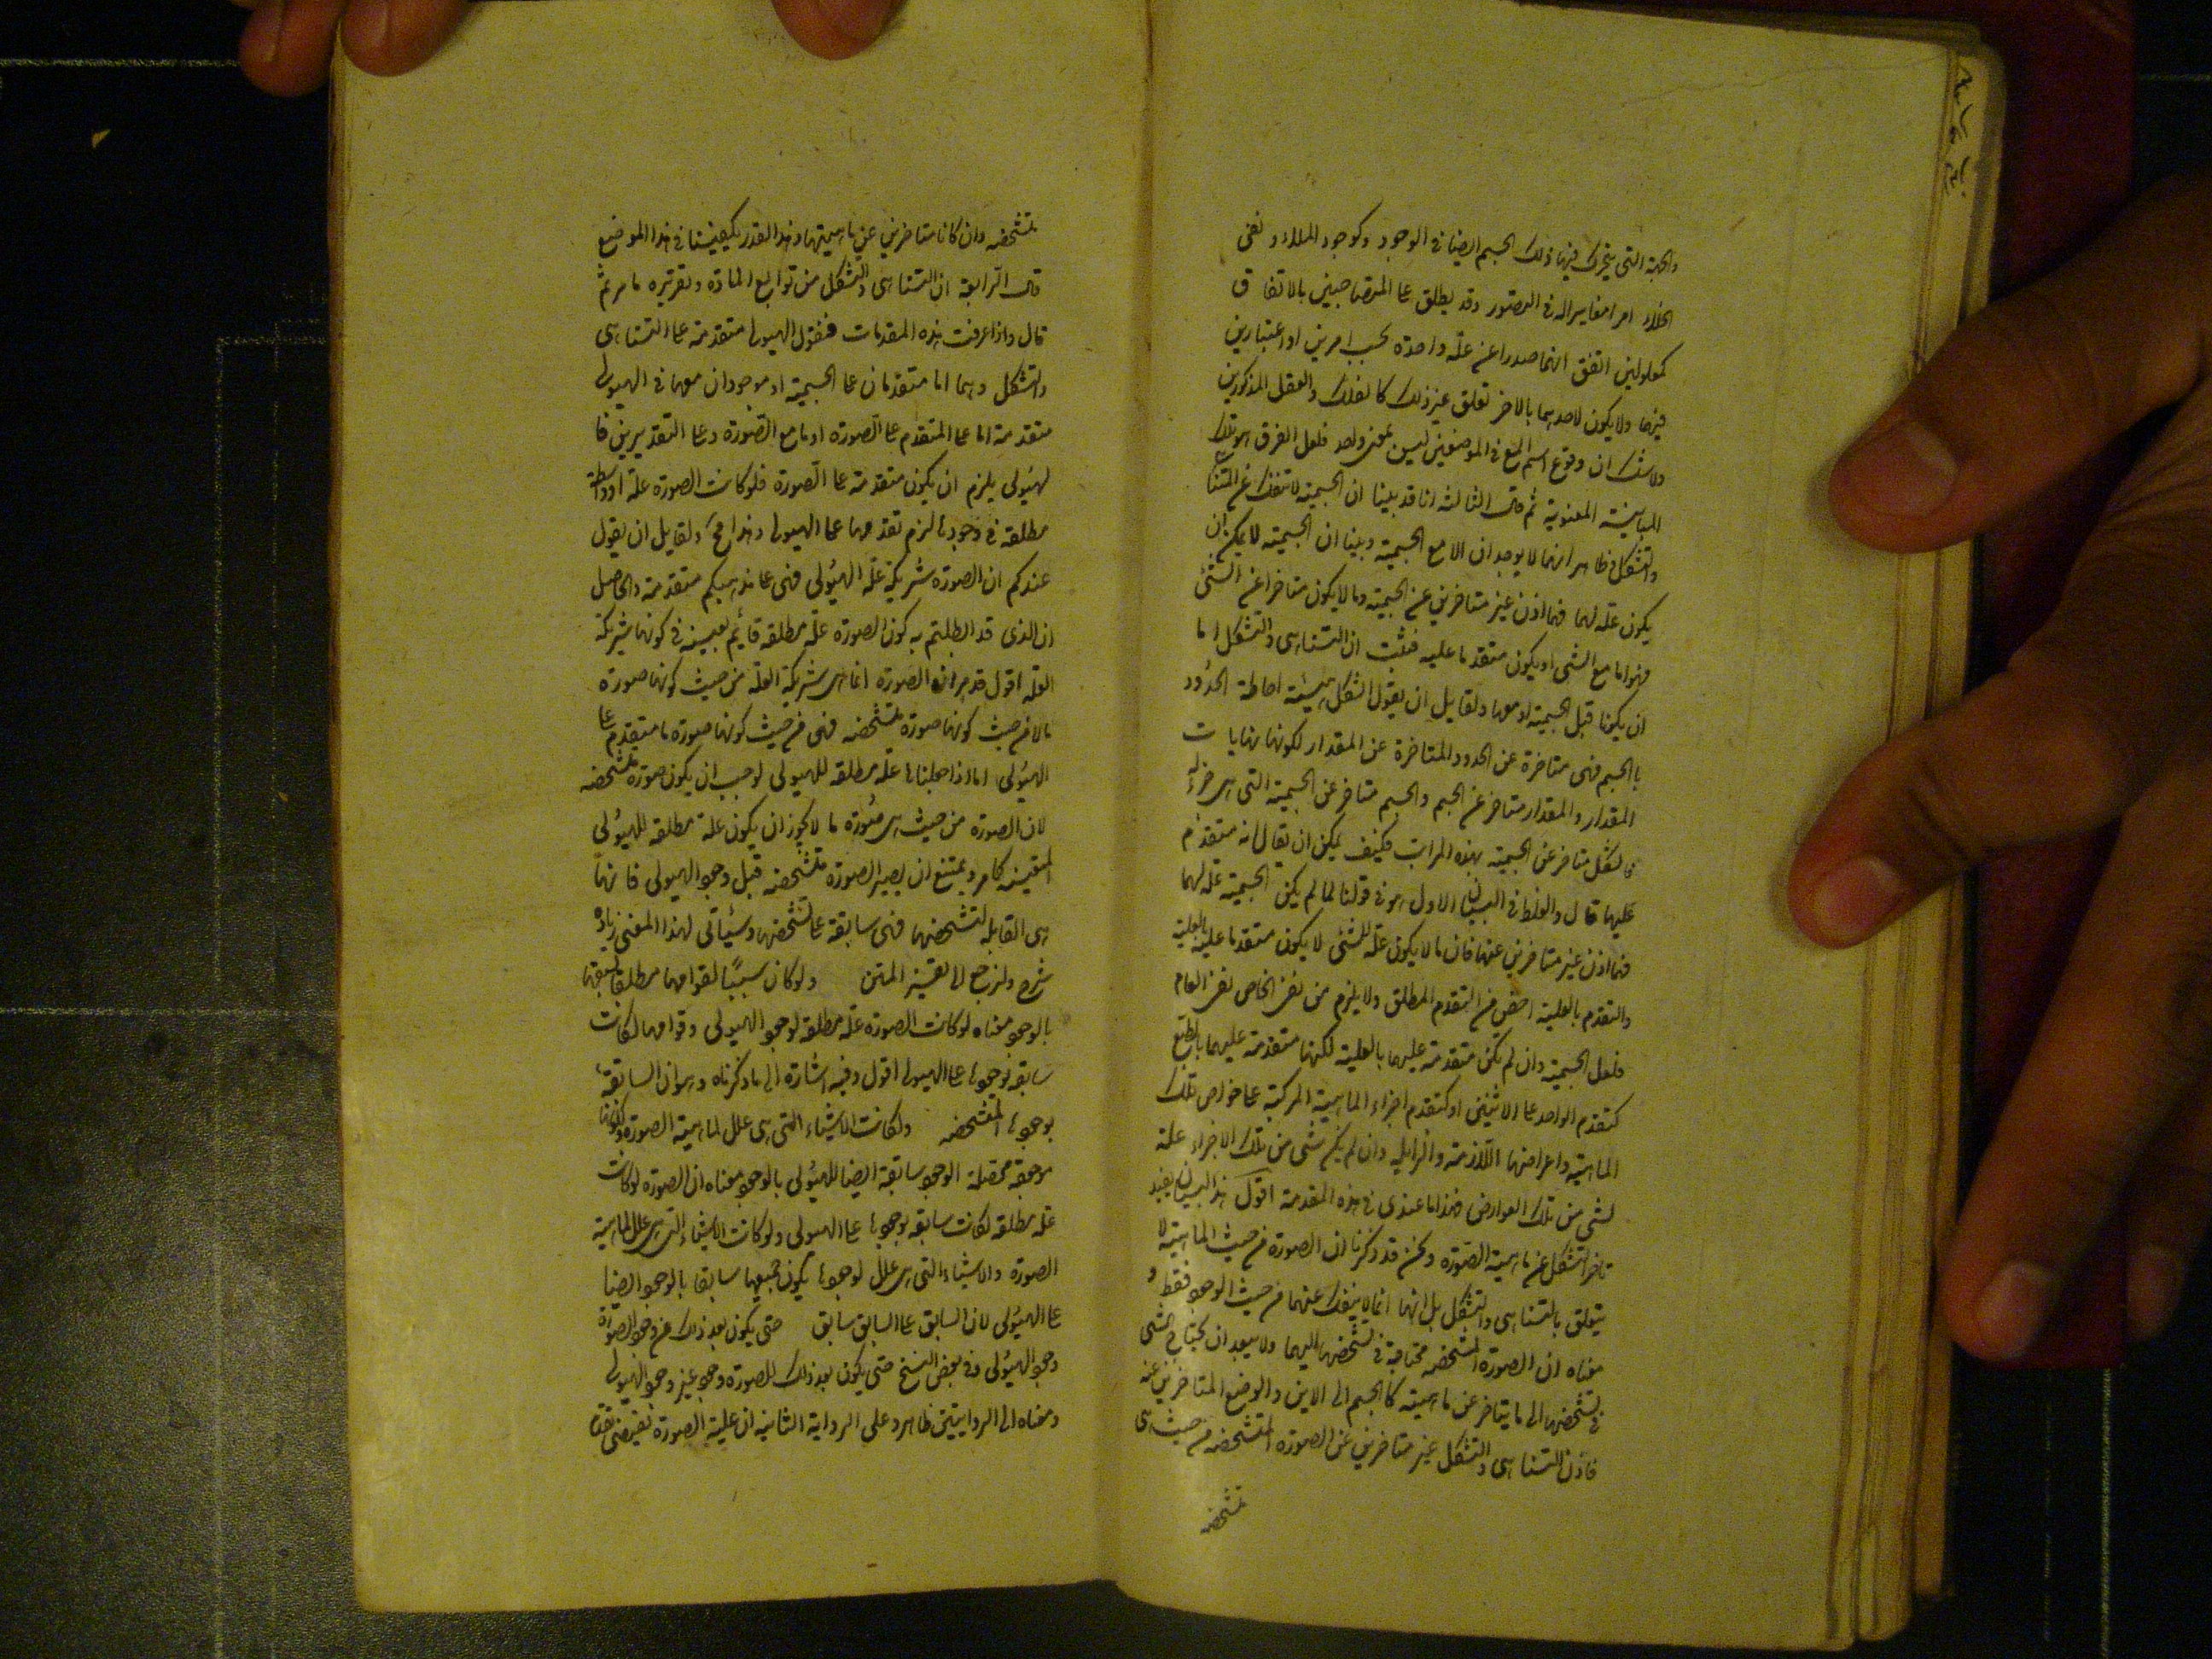 والجهة التي يتحرك فيها ذلك الجسم ايضا في الوجود وكوجود الملاء ونفي
الخلاء امرا مغايرا له في التصور وقد يطلق على المتصاحبين بالاتفاق
كمعلولين اتفق انهما صدرا عن علة واحدة بحسب امرين او اعتبارين
فيها ولا يكون لاحدهما بالاخر تعلق غير ذلك كالفلك والعقل المذكورين
ولا شك ان وقوع اسم المع في الموضعين ليس بمعنى واحد فلعل الفرق هو تلك
المباينة المعنوية ثم قال الثالثة انا قد بينا ان الجسمية لا تنفك عن التناهي
والتشكل فظاهر انهما لا يوجدان الا مع الجسمية وبينا ان الجسمية لا يمكن ان
يكون علة لهما فهما اذن غير متاخرين عن الجسمية وما لا يكون متاخرا عن الشئ
فهو اما مع الشئ او يكون متقدما عليه فثبت ان التناهى والتشكل اما
ان يكونا قبل الجسمية او معها ولقايل ان يقول الشكل هيئة احاطة الحدود
بالجسم فهى متاخرة عن الحدود المتاخرة عن المقدار لكونها نهايات
المقدار والمقدار متاخر عن الجسم والجسم متاخر عن الجسمية التى هى جزؤه
فالشكل متاخر عن الجسمية بهذه المراتب فكيف يمكن ان يقال انه متقدم
عليها قال والغلط فى البيان الاول هو فى قولنا لما لم يكن الجسمية علة لهما
فهما اذن غير متاخرين عنها فان ما لا يكون علة للشئ لا يكون متقدما عليه بالعلية
والتقدم بالعلية اخص من التقدم المطلق ولا يلزم من نفى الخاص نفى العام
فلعل الجسمية وان لم تكن متقدمة عليهما بالعلية لكنها متقدمة عليهما بالطبع
كتقدم الواحد على الاثنين او كتقدم اجزاء الماهية المركبة على خواص تلك
الماهية واعراضها اللازمة والزايلة وان لم يكن شئ من تلك الاجزاء علة
لشئ من تلك العوارض فهذا ما عندى فى هذه المقدمة اقول هذا البيان يفيد
تاخر التشكل عن ماهية الصورة ونحن قد ذكرنا ان الصورة من حيث الماهية لا
يتعلق بالتناهى والتشكل بل انهما انما لا ينفك عنهما من حيث الوجود فقط و
معناه ان الصورة المشخصة محتاجة فى تشخصها اليهما ولا يبعد ان يحتاج الشئ
فى تشخصها الى ما يتاخر عن ماهيته كالجسم الى الاين والوضع المتاخرين عنه
فاذن التناهى والتشكل غير متاخرين عن الصورة المتشخصة من حيث هى
متشخصة
متشخصة وان كانا متاخرين عن ماهيتها وهذا القدر يكفينا فى هذا الموضع
قال الرابعة ان التناهى والتشكل من توابع المادة وتقريره ما مر ثم
قال واذا عرفت هذه المقدمات فنقول الهيولى متقدمة على التناهى
والتشكل وهما اما متقدمان على الجسمية او موجودان معها فى الهيولى
متقدمة اما على المتقدم على الصورة او ما مع الصورة وعلى التقديرين فا
لهيولى يلزم ان يكون متقدمة على الصورة فلو كانت الصورة علة او واسطة
مطلقة فى وجودها لزم تقدمها على الهيولى وهذا مح ولقايل ان يقول
عندكم ان الصورة شريكة علة الهيولى فهى على مذهبكم متقدمة والحاصل
ان الذى قد ابطلتم به كون الصورة علة مطلقة قائم بعينه فى كونها شريكة
العلة اقول قد مر ان الصورة انما هى شريكة العلة من حيث كونها صورة
ما لا من حيث كونها صورة متشخصة فهى من حيث كونها صورة ما متقدم على
الهيولى اما اذا جعلناها علة مطلقة للهيولى لوجب ان يكون صورة متشخصة
لان الصورة من حيث هى صورة ما لا يجوز ان يكون علة مطلقة للهيولى
المتعينة كما مر ويمتنع ان يصير الصورة متشخصة قبل وجود الهيولى فانها
هى القابلة لتشخصها فهى سابقة على تشخصها وسيأتى لهذا المعنى زيادة
شرح ولنرجع الى تفسير المتن ولو كان سببا لقوامها مطلقا لسبقها
بالوجود معناه لو كانت الصورة علة مطلقة لوجود الهيولى وقوامها لكانت
سابقة بوجودها على الهيولى اقول وفيه اشارة الى ما ذكرناه وهو ان السابقة
بوجودها المتشخصة ولكانت الاشياء التى هى علل لماهية الصورة ولكونها
موجودة محصلة الوجود سابقة ايضا للهيولى بالوجود معناه ان الصورة لو كانت
علة مطلقة لكانت سابقة بوجودها على الهيولى ولو كانت الاشياء التى هى علل لماهية
الصورة والاشياء التى هى علل لوجودها يكون جميعها سابقا بالوجود ايضا
على الهيولى لان السابق على السابق سابق حتى يكون بعد ذلك عن وجود الصورة
وجود الهيولى وفى بعض النسخ حتى يكون بعد ذلك للصورة وجود غير وجود الهيولى
ومعناه الى الروايتين ظاهر وعلى الرواية الثانية ان علية الصورة تقتضى تقدم